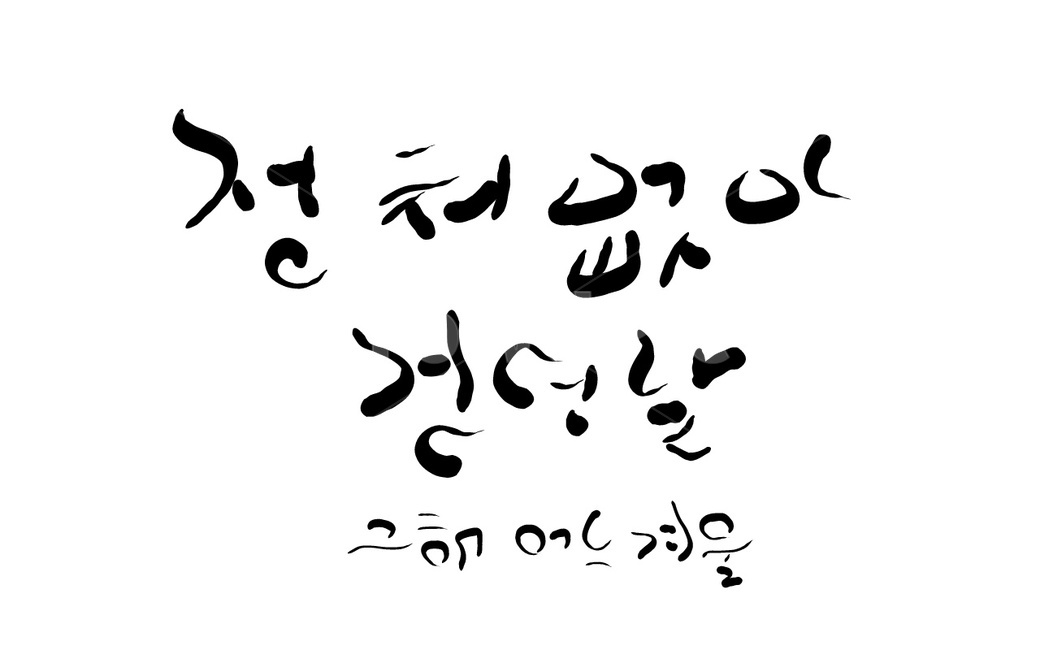 정처없이
걷던 날
그해 어느 겨울